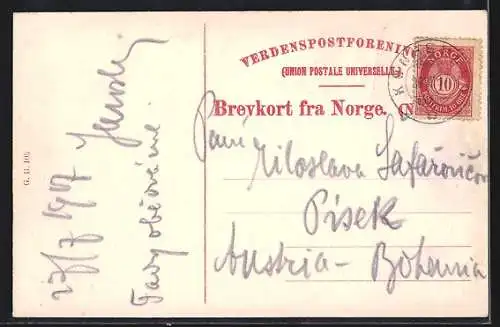 VERDENSPOSTFORENIN
(UNION POSTALE UNIVERSELLE.)
Brevkort fra Norge. (N
NORGE
10
Paní Miloslava Šafaříčov
Písek
Austria - Bohemia
27/7 1907
G. H. 105